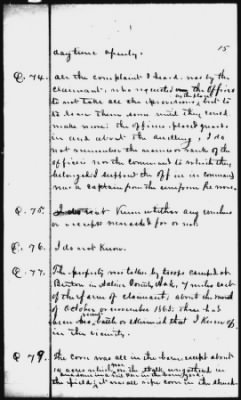 15
daytime openly.
Q. 74. All the complaint I heard was by the
claimant, who requested the officer
in charge
to not take all the provisions, but to
to leave them some until they could
make more: the officer placed guards
in and about the dwelling, I do
not remember the name or rank of the
officer nor the command to which they
belonged I suppose the officer in command
was a captain from the uniform he wore.
Q. 75. I do not Know whether any voucher
or receipt was asked for or not.
Q. 76. I do not Know.
Q. 77. The property was taken by troops camped at
Benton in Saline County Ark, 7 miles east
of the farm of claimants, about the month
of October or November 1863: there had
been no battle or skirmish that I Know of,
in the vicinity.
Q. 79. The corn was all in the barn except about
10 acres which was in the stalk ungathered in
the field, it was all ripe corn in the shuck